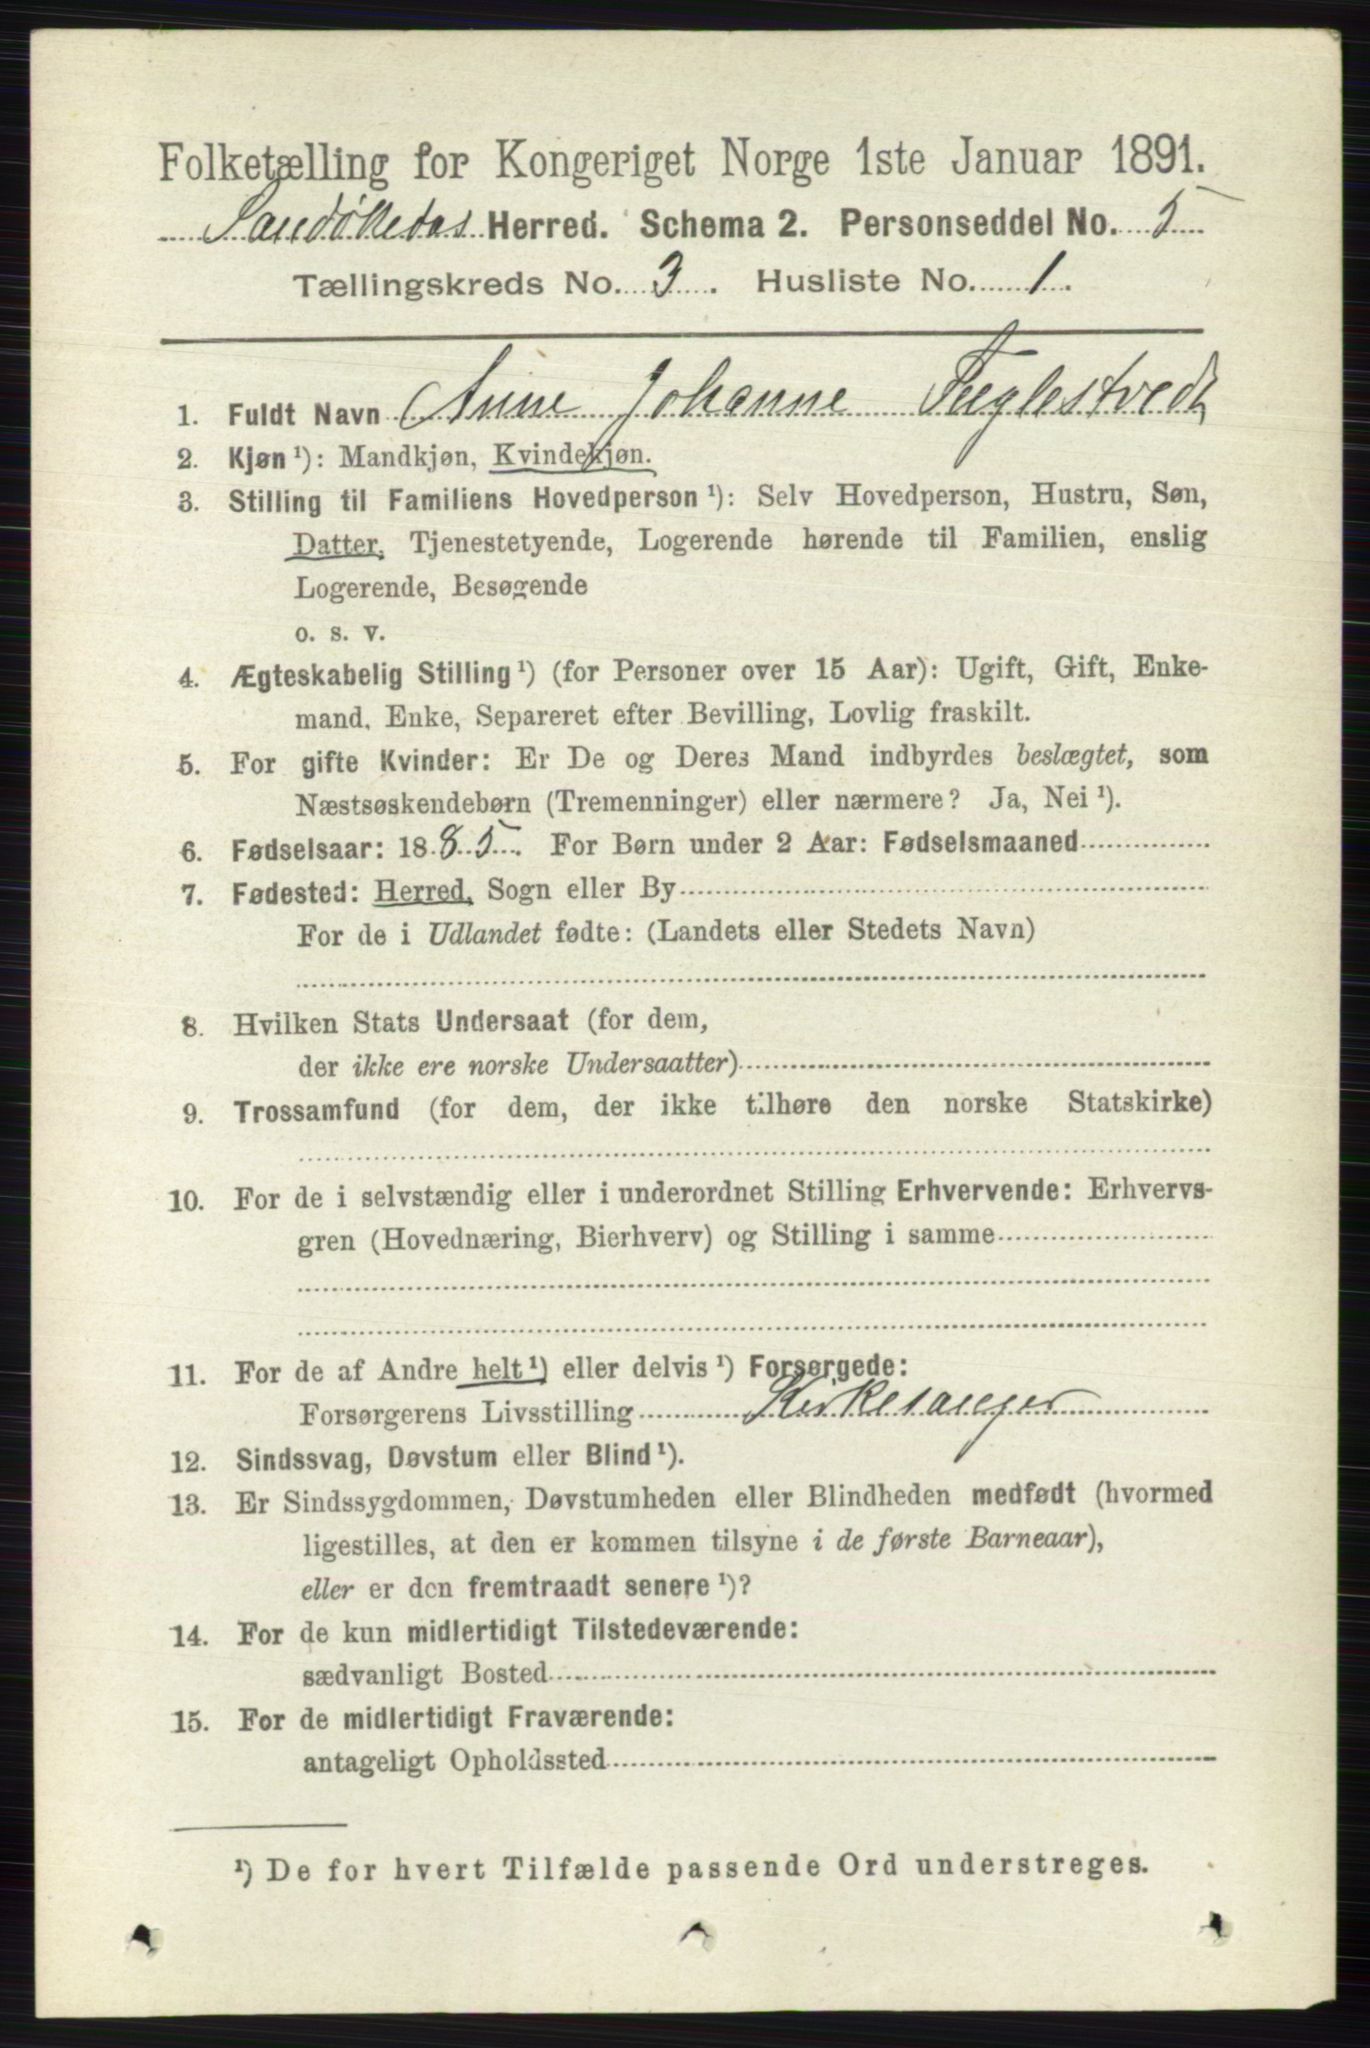 Folketælling for Kongeriget Norge 1ste Januar 1891.
Sandøkedas Herred. Schema 2. Personseddel No. 5
Tællingskreds No. 3. Husliste No. 1.
1. Fuldt Navn Anne Johanne Fuglestvedt
2. Kjøn ¹): Mandkjøn, Kvindekjøn.
3. Stilling til Familiens Hovedperson ¹): Selv Hovedperson, Hustru, Søn,
Datter, Tjenestetyende, Logerende hørende til Familien, enslig
Logerende, Besøgende
o. s. v.
4. Ægteskabelig Stilling ¹) (for Personer over 15 Aar): Ugift, Gift, Enke-
mand, Enke, Separeret efter Bevilling, Lovlig fraskilt.
5. For gifte Kvinder: Er De og Deres Mand indbyrdes beslægtet, som
Næstsøskendebørn (Tremenninger) eller nærmere? Ja, Nei ¹).
6. Fødselsaar: 1885. For Børn under 2 Aar: Fødselsmaaned
7. Fødested: Herred, Sogn eller By
For de i Udlandet fødte: (Landets eller Stedets Navn)
8. Hvilken Stats Undersaat (for dem,
der ikke ere norske Undersaatter)
9. Trossamfund (for dem, der ikke tilhøre den norske Statskirke)
10. For de i selvstændig eller i underordnet Stilling Erhvervende: Erhvervs-
gren (Hovednæring, Bierhverv) og Stilling i samme
11. For de af Andre helt ¹) eller delvis ¹) Forsørgede:
Forsørgerens Livsstilling Kirkesanger
12. Sindssvag, Døvstum eller Blind ¹).
13. Er Sindssygdommen, Døvstumheden eller Blindheden medfødt (hvormed
ligestilles, at den er kommen tilsyne i de første Barneaar),
eller er den fremtraadt senere ¹)?
14. For de kun midlertidigt Tilstedeværende:
sædvanligt Bosted
15. For de midlertidigt Fraværende:
antageligt Opholdssted
¹) De for hvert Tilfælde passende Ord understreges.